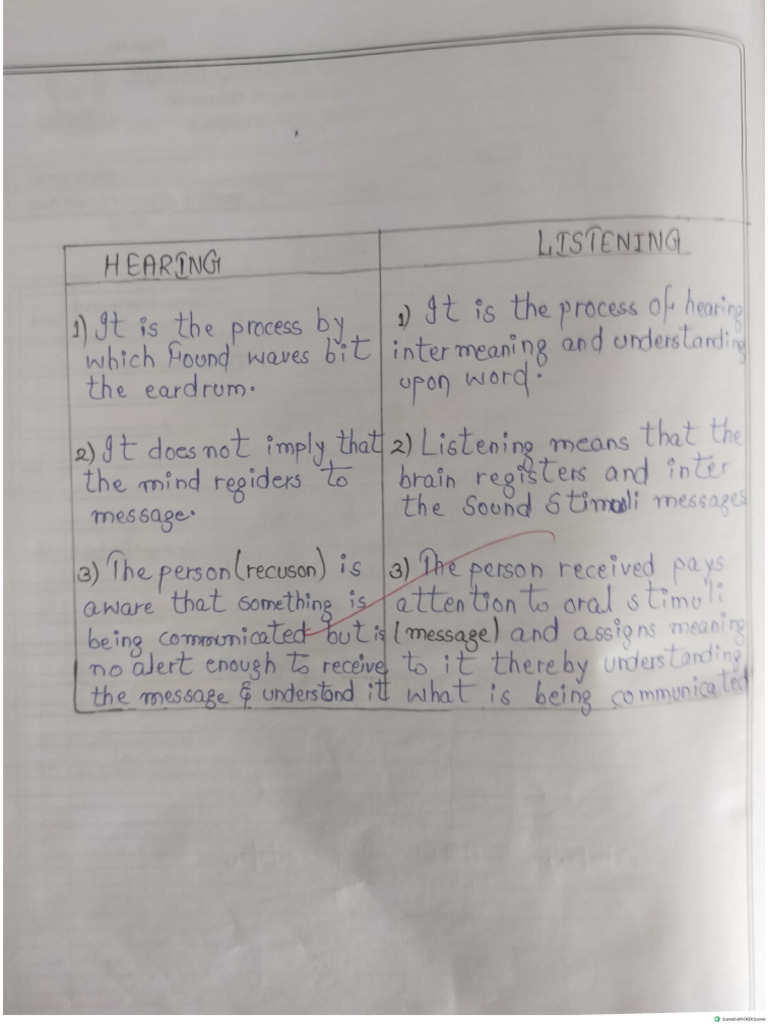 HEARING
1) It is the process by
which Found waves bit
the eardrum.
2) It does not imply that
the mind regiders to
message.
3) The person (recuson) is
aware that something is
being communicated but is
no alert enough to receive
the message & understand it
LISTENING
1) It is the process of hearing
inter meaning and understanding
upon word.
2) Listening means that the
brain registers and inter
the Sound Stimuli messages
3) The person received pays
attention to oral stimuli
(message) and assigns meaning
to it thereby understanding
what is being communicated
Scanned with OKEN Scanner